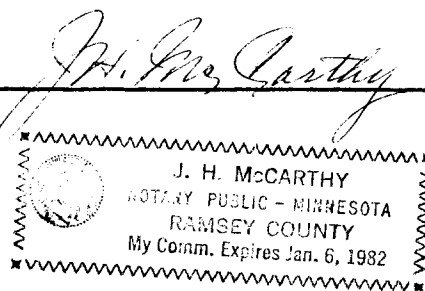 J. H. McCarthy
J. H. McCARTHY
NOTARY PUBLIC - MINNESOTA
RAMSEY COUNTY
My Comm. Expires Jan. 6, 1982